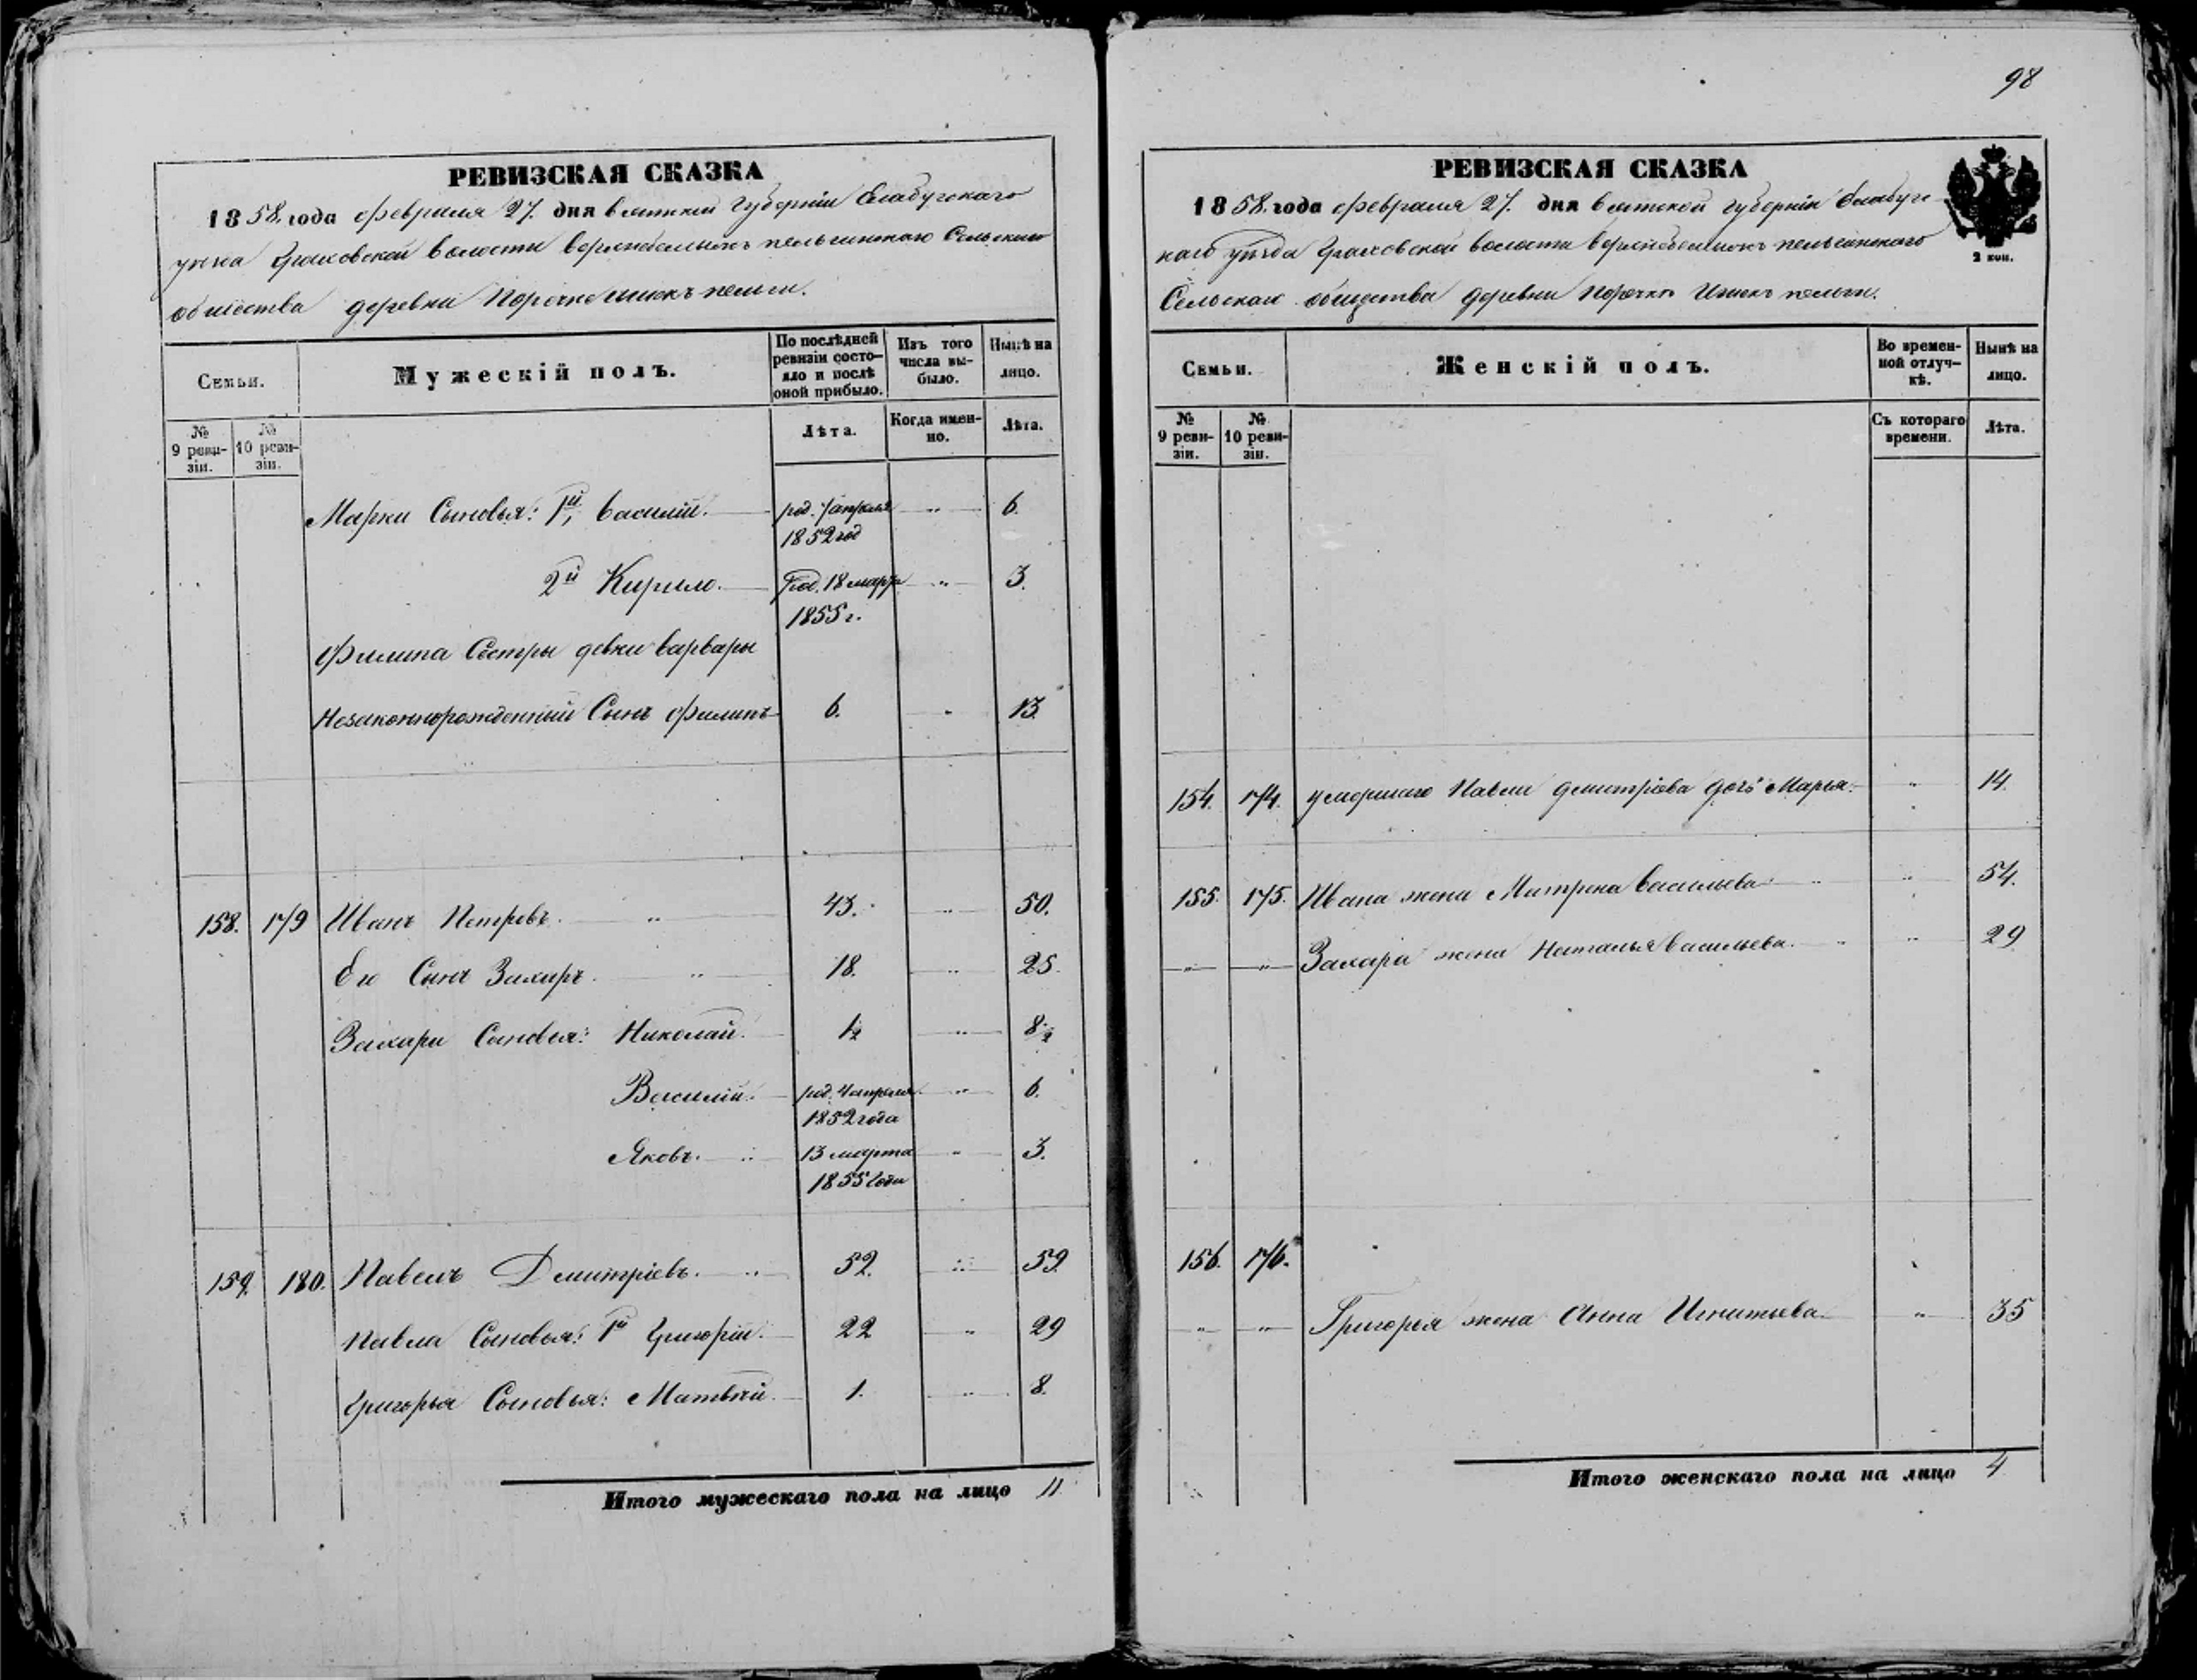 98
РЕВИЗСКАЯ СКАЗКА
1858. года февраля 27. дня Вятской Губерніи Елабугскаго
уѣзда Граховской волости
Сельскаго
общества деревни Порочко Ишекъ пельги.
Семьи.
Мужескій полъ.
По послѣдней ревизіи состояло и послѣ оной прибыло.
Изъ того числа выбыло.
Нынѣ на лицо.
№ 9 ревизіи.
№ 10 ревизіи.
Лѣта.
Когда именно.
Лѣта.
Марки Сыновья: 1й, Василій. род. 7 апреля 1852 год " 6.
2й Кирило. Род. 18 мар 1855 г. " 3.
Филипа Сестры девки Варвары
Незаконнорожденный Сынъ Филипъ 6. " 13.
158. 179 Иванъ Петровъ. " 43. " 50.
Его Сынъ Захаръ. " 18. " 25.
Захара Сыновья: Николай. 1/2 " 8 1/2
Василій. род. 4 апреля 1852 года " 6.
Яковъ. " 13 марта 1855 года " 3.
159. 180. Павелъ Дмитріевъ. " 52. " 59.
Павла Сыновья: 1й Григорій. 22 " 29
Григорья Сыновья: Матвѣй. 1. " 8.
Итого мужескаго пола на лицо 11
РЕВИЗСКАЯ СКАЗКА
1858. года февраля 27. дня Вятской губерніи Елабугс
каго уѣзда Граховской волости
Сельскаго общества деревни Порочко Ишекъ пельги.
2 коп.
Семьи.
Женскій полъ.
Во временной отлучкѣ.
Нынѣ на лицо.
№ 9 ревизіи.
№ 10 ревизіи.
Съ котораго времени.
Лѣта.
154. 174. умершаго Павла Дмитріева дочь Марья. " 14
155. 175. Ивана жена Матрена Васильева " 54.
" " Захара жена Наталья Васильева. " 29
156. 176.
" " Григорья жена Анна Игнатьева " 35
Итого женскаго пола на лицо 4